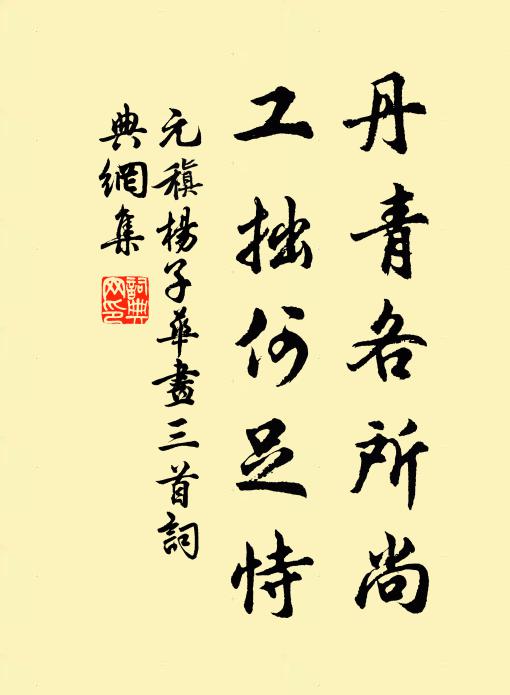 丹青各所尚
工拙何足恃
元稹楊子華畫三首詞
典網集
詞典
网印